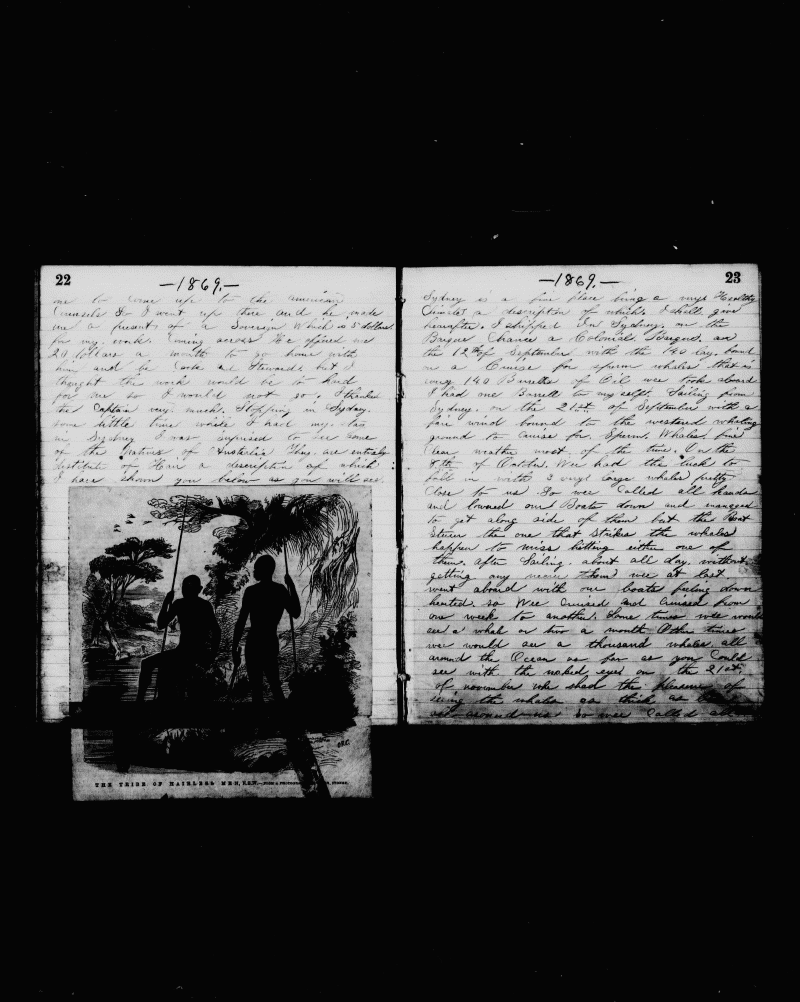 22
—1869.—
me to come up to the american
Counsels So I went up there and he made
me a present of a Soverign Which is 5 dollars
for my work. Coming across He offered me
20 Dollars a month to go home with
him and be Cook and Steward but I
thought the work would be to hard
for me so I would not go. I thanked
the Captain very much. Stopping in Sydney.
some little time While I had my stay
in Sydney I was supprised to see some
of the Natives of Austerlia They are entirely
destitute of Hair a description of which
I have shown you below as you will see.
THE TRIBE OF HAIRLESS MEN, N.S.W.—FROM A
23
—1869.—
Sydney is a fine place being a very Healthy
Climate a description of which. I shall give
hereafter. I shipped In Sydney. on the
Brigue Chance a Colonial Brigue. on
the 12th of September with the 140 lay. bound
on a Cruise for sperm whales that is
every 140 Barrells of Oil wee took aboard
I had one Barrell to my self. Sailing from
Sydney. on the 21st. of September with a
fair wind bound to the westered whaling
ground to Cruise for Sperm. Whales. fine
Clear weather most of the time. On the
8th of Octobr. Wee had the luck to
fall in with 3 very large whales pretty
Close to us So wee Called all hands
and lowerd our Boats down and managed
to get along side of them but the Boat
Steerer the one that strikes the whales
happen to miss hitting either one of
them. after Sailing about all day. without.
getting any nearer them wee at last
went aboard with our boats feeling down
hearted. so Wee Cruised and Cruised from
one week to another. Some times wee would
see a whale or two a month Other times
wee would see a thousand whales all
around the Ocean as far as you Could
see with the naked eyes on the 21st.
of november We had the pleasure of
seeing the whales as thick as
around us so wee Called all